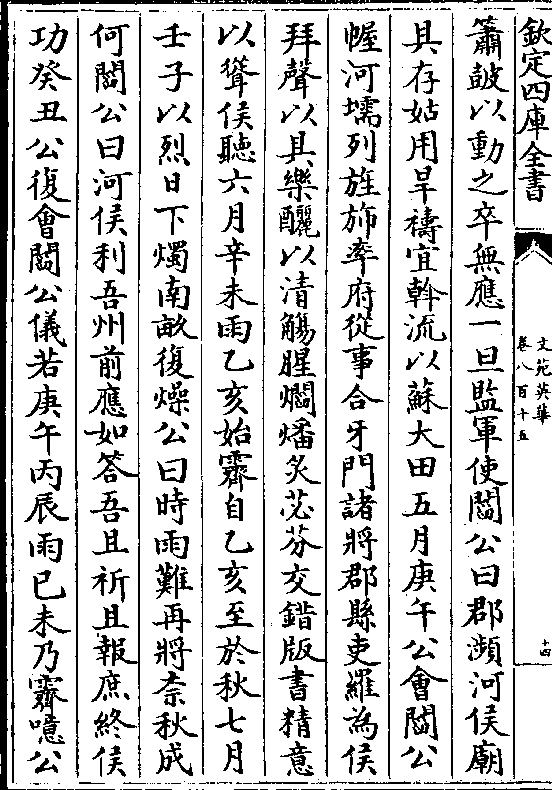 欽定四庫全書
文苑英華
卷八百十五
十四
簫鼓以動之卒無應一旦監軍使閻公曰郡瀕河侯廟
具存姑用旱禱宜斡流以蘇大田五月庚午公會閻公
幄河壖列旌斾率府從事合牙門諸將郡縣吏羅為侯
拜聲以具樂釃以清觴腥爓燔炙苾芬交錯版書精意
以聳侯聽六月辛未雨乙亥始霽自乙亥至於秋七月
壬子以烈日下燭南畝復燥公曰時雨難再將奈秋成
何閻公曰河侯利吾州前應如答吾且祈且報庶終侯
功癸丑公復會閻公儀若庚午丙辰雨已未乃霽噫公